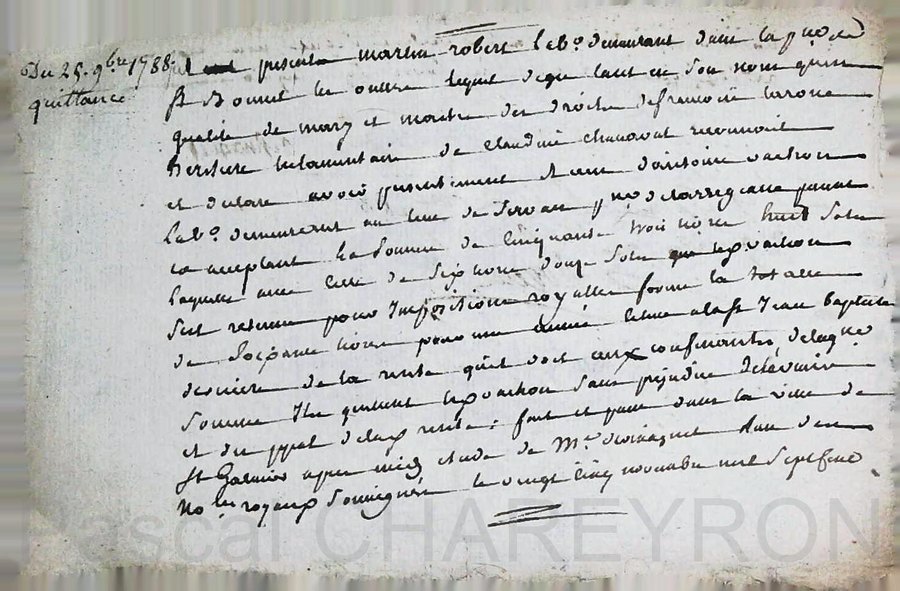 Du 25. 9bre 1788.
quittance
present martin robert lab.r demeurant dans la p.sse de
St Bonnet les oulles lequel de gré tant en son nom qu'en
qualité de mary et maitre des droits de francoise larone
heritiere testamentaire de Claudine chanavat reconnoit
et declare avoir presentement et d'antoine vachon
lab.r demeurant au lieu de p.sse de larregeane present
ce acceptant la somme de Cinquante trois livres huit sols
laquelle avec celle de six livres douze sols que led. vachon
s'est retenue pour Impositions royalles forme la totale
de soixante livres pour une année echue a la st Jean Baptiste
derniere de la rente qu'il doit aux confinantes, de laquelle
somme Ils quittent led. vachon sans prejudice de l'avenir
et du p.pal de lad. rente; fait et passé dans la ville de
St Galmier apres midy etude de M.e l'un des
No.res royaux soussignés le vingt cinq novembre mil sept cent
Pascal CHAREYRON